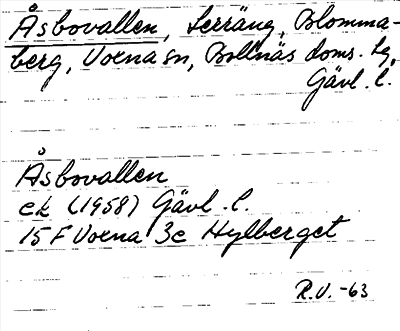 Åsbovallen, Serräng, Blomma-
berg, Voxna sn, Bollnäs doms. lg,
Gävl. l.
Åsbovallen
ek (1958) Gävl. l.
15 F Voxna 3e Hylberget
R.U. -63